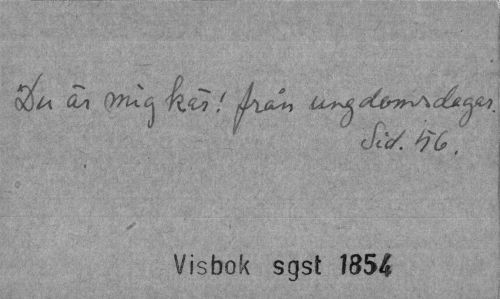 Du är mig kär! från ungdomsdagar.
Sid. 46.
Visbok sgst 1854